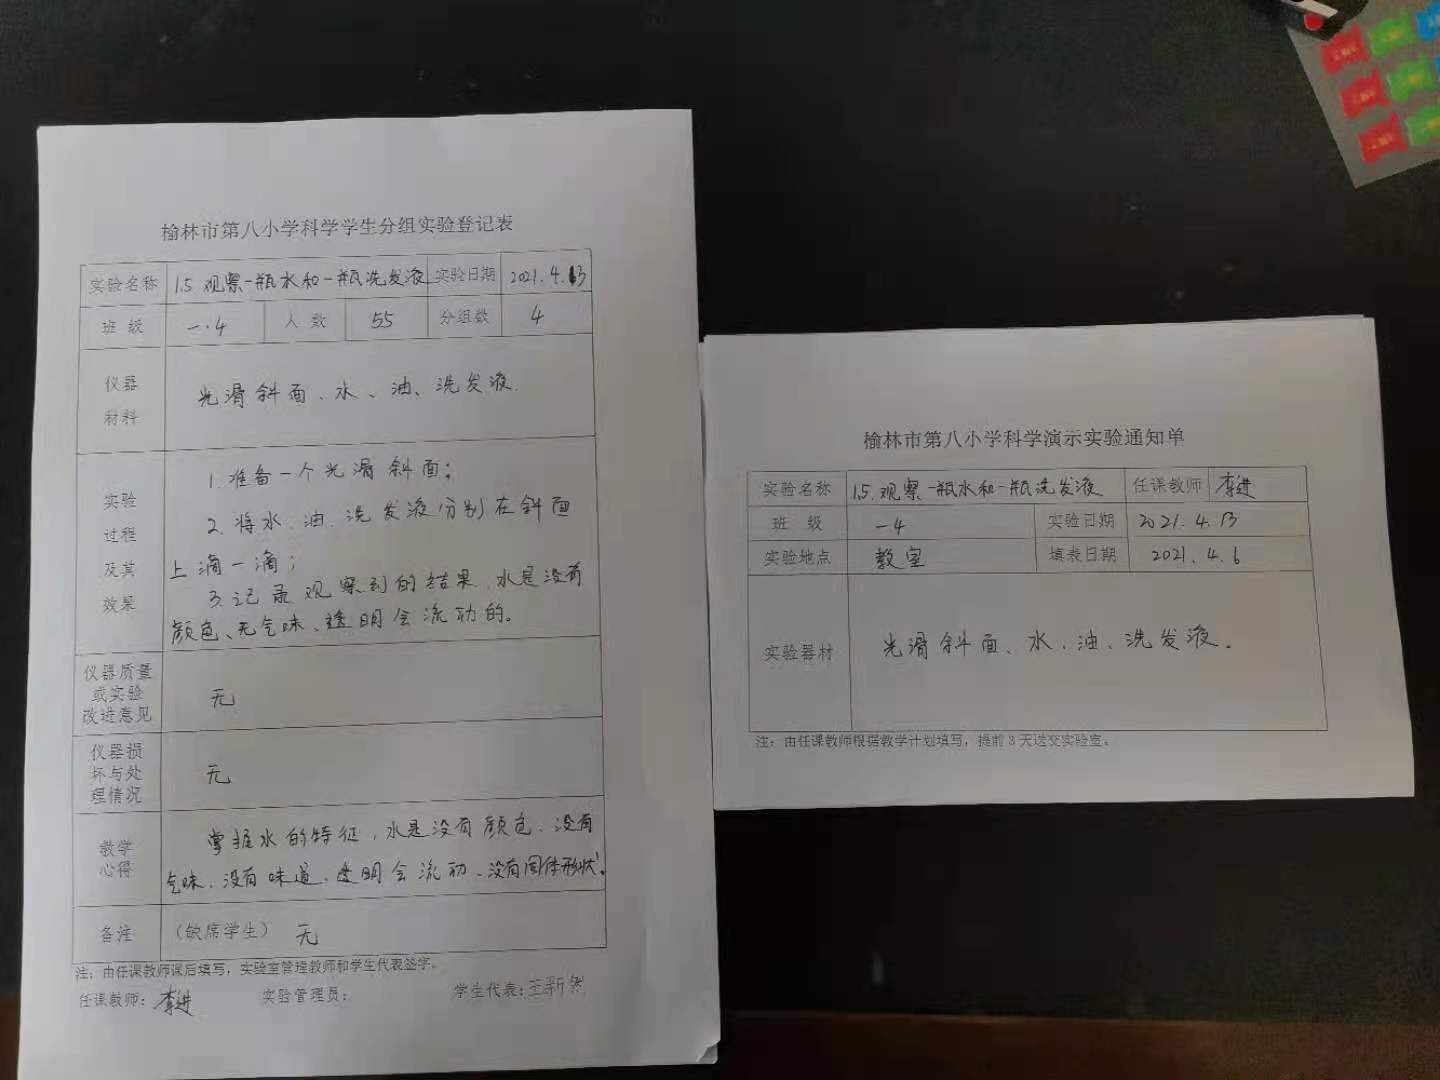 榆林市第八小学科学学生分组实验登记表
实验名称 1.5 观察一瓶水和一瓶洗发液 实验日期 2021.4.13
班 级 一.4 人 数 55 分组数 4
仪器
材料
光滑斜面、水、油、洗发液.
实验
过程
及其
效果
1.准备一个光滑斜面;
2.将水、油、洗发液分别在斜面
上滴一滴;
3.记录观察到的结果.水是没有
颜色、无气味、透明会流动的。
仪器质量
或实验
改进意见
无
仪器损
坏与处
理情况
无
教学
心得
掌握水的特征,水是没有颜色、没有
气味、没有味道、透明会流动、没有固体形状。
备注 (缺席学生) 无
注:由任课教师课后填写,实验室管理教师和学生代表签字。
任课教师:李进 实验管理员: 学生代表:王新
榆林市第八小学科学演示实验通知单
实验名称 1.5.观察一瓶水和一瓶洗发液 任课教师 李进
班 级 一4 实验日期 2021.4.13
实验地点 教室 填表日期 2021.4.6
实验器材 光滑斜面、水、油、洗发液。
注:由任课教师根据教学计划填写,提前3天送交实验室。